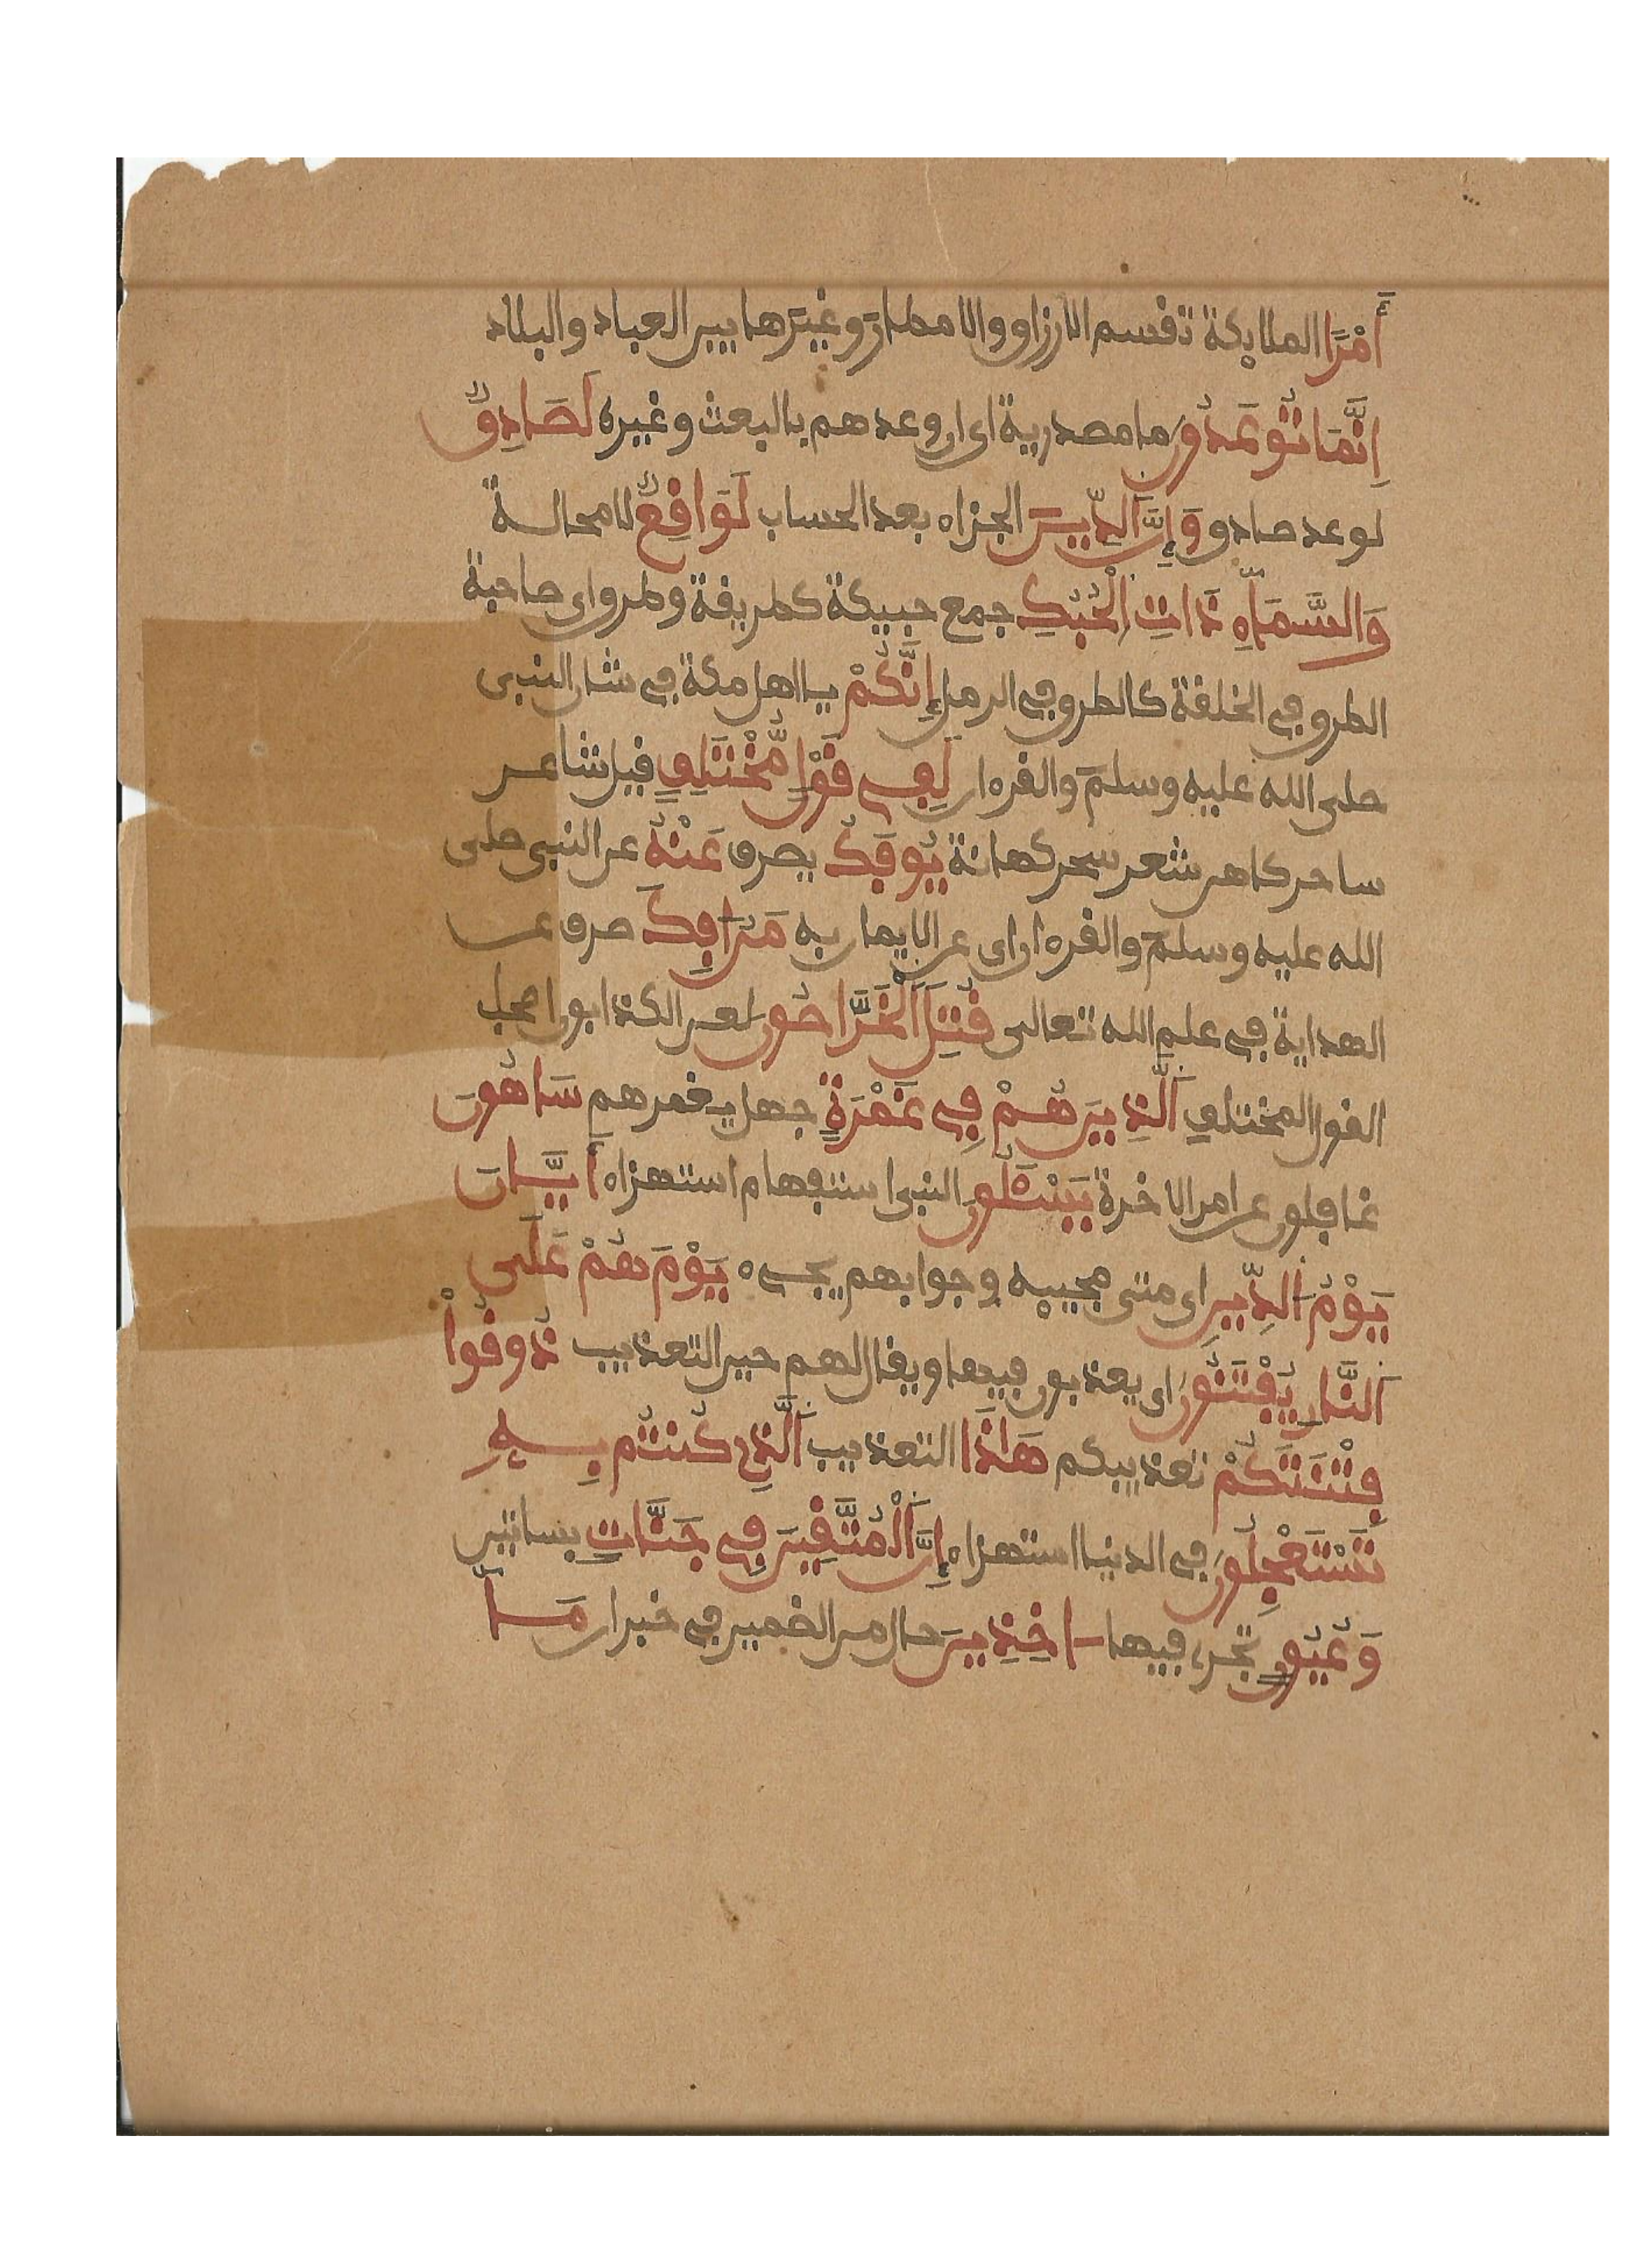 أَمْرًا الملايكة تقسم الارزاق والامطار وغيرها بين العباد والبلاد
إِنَّمَا تُوعَدُونَ ما مصدرية اى ان وعدهم بالبعث وغيره لَصَادِقٌ
لوعد صادق وَإِنَّ اَلدِّينَ الجزاء بعد الحساب لَوَاقِعٌ لا محالة
وَالسَّمَآءِ ذَاتِ اِلْحُبُكِ جمع حبيكة كطريقة وطرق اى صاحبة
الطرق في الخلقة كالطرق في الرمل إِنَّكُمْ يا اهل مكة في شان النبى
صلى الله عليه وسلم والقرءان لَفِے قَوْلٍ مُّخْتَلِفٍ قيل شاعر
ساحر كاهن شعر سحر كهانة يُوفَكُ يصرف عَنْهُ عن النبى صلى
الله عليه وسلم والقرءان اى عن الايمان به مَنُ افِكَ صرف عن
الهداية في علم الله تعالى قُتِلَ اَلْخَرَّاصُونَ لعن الكذابون اصحاب
القول المختلف اَلَّذِينَ هُمْ فِے غَمْرَةٍ جهل يغمرهم سَاهُونَ
غافلون عن امر الاخرة يَسْـَٔلُونَ النبى استفهام استهزاء أَيَّانَ
يَوْمُ اَلدِّينِ اى متى مجييه وجوابهم يجيء يَوْمَ هُمْ عَلَى
اَلنَّارِ يُفْتَنُونَ اى يعذبون فيها ويقال لهم حين التعذيب ذُوقُواْ
فِتْنَتَكُمْ تعذيبكم هَٰذَا التعذيب اَلَّذِے كُنتُم بِهِ
تَسْتَعْجِلُونَ في الدنيا استهزاء إِنَّ اَلْمُتَّقِينَ فِے جَنَّاتٍ بساتين
وَعُيُونٍ تجرى فيها ءَاخِذِينَ حال من الضمير في خبر ان مَآ